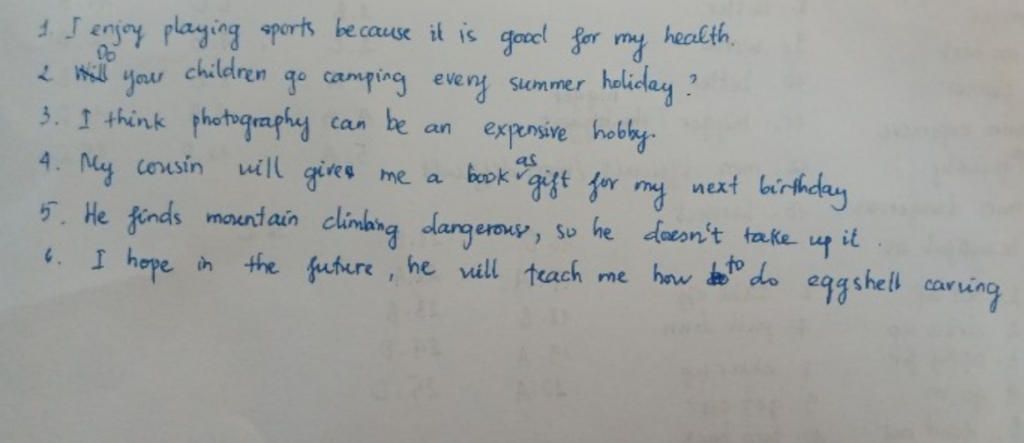 1. I enjoy playing sports because it is good for my health.
2 Do your children go camping every summer holiday?
3. I think photography can be an expensive hobby.
4. My cousin will give me a book as gift for my next birthday
5. He finds mountain climbing dangerous, so he doesn't take up it.
6. I hope in the future, he will teach me how to do eggshell carving